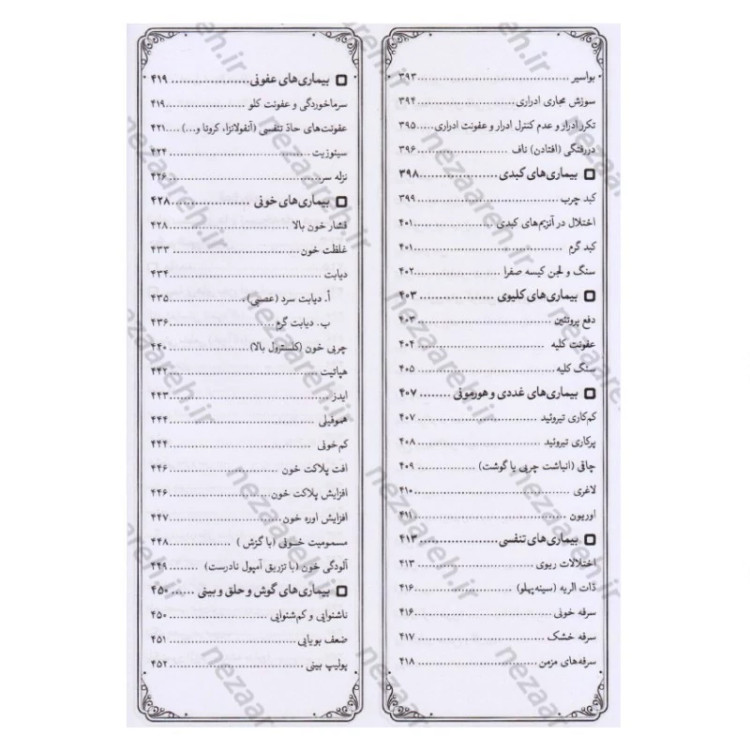 بواسیر ۳۹۳
سوزش مجاری ادراری ۳۹۴
تکرر ادرار و عدم کنترل ادرار و عفونت ادراری ۳۹۵
دررفتگی (افتادن) ناف ۳۹۶
بیماری‌های کبدی ۳۹۸
کبد چرب ۳۹۹
اختلال در آنزیم‌های کبدی ۴۰۱
کبد گرم ۴۰۱
سنگ و لجن کیسه صفرا ۴۰۲
بیماری‌های کلیوی ۴۰۳
دفع پروتئین ۴۰۳
عفونت کلیه ۴۰۴
سنگ کلیه ۴۰۵
بیماری‌های غددی و هورمونی ۴۰۷
کم‌کاری تیروئید ۴۰۷
پرکاری تیروئید ۴۰۸
چاقی (انباشت چربی یا گوشت) ۴۰۹
لاغری ۴۱۰
اوریون ۴۱۱
بیماری‌های تنفسی ۴۱۳
اختلالات ریوی ۴۱۳
ذات الریه (سینه‌پهلو) ۴۱۶
سرفه خونی ۴۱۶
سرفه خشک ۴۱۷
سرفه‌های مزمن ۴۱۸
بیماری‌های عفونی ۴۱۹
سرماخوردگی و عفونت گلو ۴۱۹
عفونت‌های حادّ تنفسی (آنفولانزا، کرونا و...) ۴۲۱
سینوزیت ۴۲۴
نزله سر ۴۲۶
بیماری‌های خونی ۴۲۸
فشار خون بالا ۴۲۸
غلظت خون ۴۳۳
دیابت ۴۳۴
أ. دیابت سرد (عصبی) ۴۳۵
ب. دیابت گرم ۴۳۶
چربی خون (کلسترول بالا) ۴۴۰
هپاتیت ۴۴۲
ایدز ۴۴۳
هموفیلی ۴۴۴
کم‌خونی ۴۴۴
افت پلاکت خون ۴۴۶
افزایش پلاکت خون ۴۴۶
افزایش اوره خون ۴۴۷
مسمومیت خونی (با گزش) ۴۴۸
آلودگی خون (با تزریق آمپول نادرست) ۴۴۹
بیماری‌های گوش و حلق و بینی ۴۵۰
ناشنوایی و کم‌شنوایی ۴۵۰
ضعف بویایی ۴۵۱
پولیپ بینی ۴۵۲
nezaareh.ir